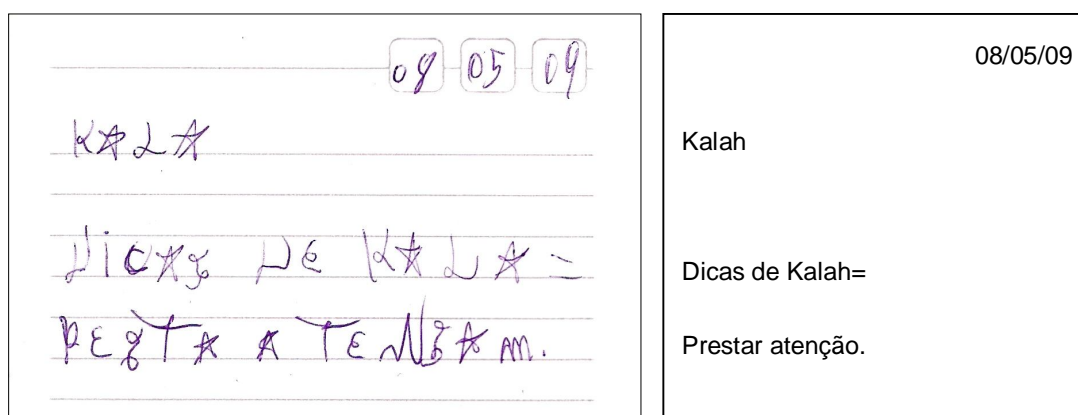 08 05 09
KALA
DICAS DE KALA=
PESTA A TENSAM.
08/05/09
Kalah
Dicas de Kalah=
Prestar atenção.